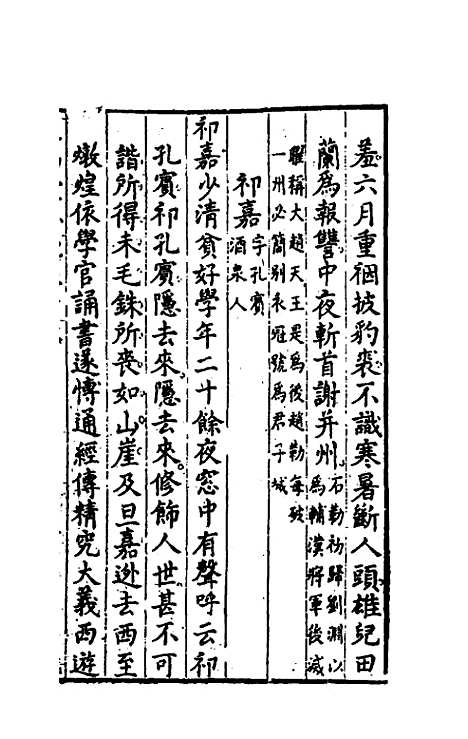 羞六月重裀披豹裘不識寒暑斷人頭雄兒田
蘭爲報讐中夜斬首謝并州石勒初歸劉淵以
爲輔漢將軍後滅
曜稱大趙天王是爲後趙勒每破
一州必簡別衣冠號爲君子城
祁嘉字孔賓
酒泉人
祁嘉少清貧好學年二十餘夜窓中有聲呼云祁
孔賓祁孔賓隱去來隱去來修飾人世甚不可
諧所得未毛銖所喪如山崖及旦嘉逃去西至
燉煌依學官誦書遂愽通經傳精究大義西遊